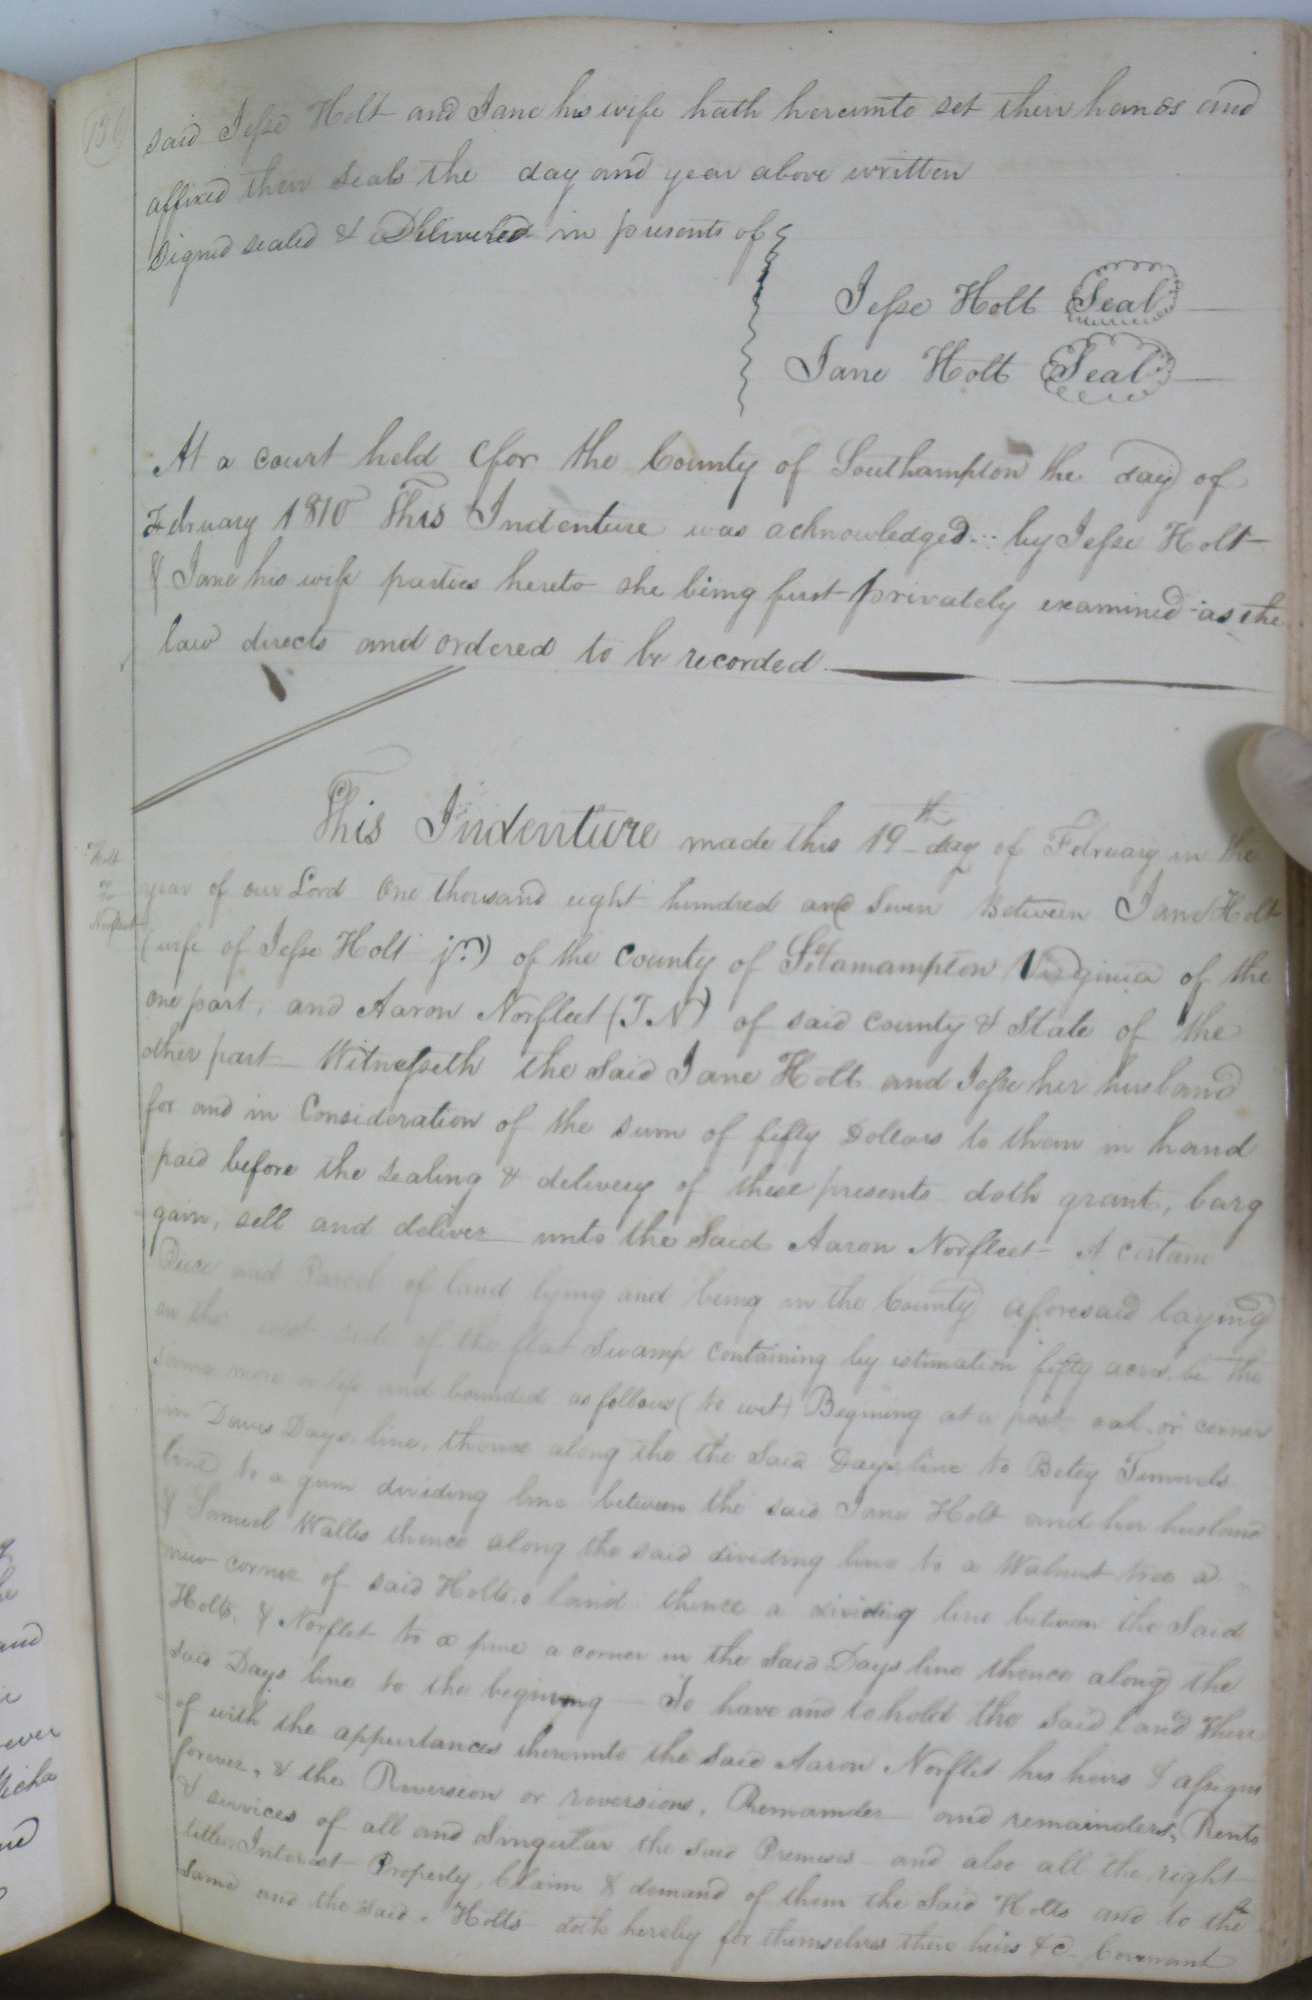 130
said Jesse Holt and Jane his wife hath hereunto set their hands and
affixed their seals the day and year above written
Signed sealed & Delivered in presents of
Jesse Holt Seal
Jane Holt Seal
At a court held for the County of Southampton the day of
February 1810 This Indenture was acknowledged by Jesse Holt
& Jane his wife parties hereto she being first privately examined as the
law directs and ordered to be recorded
This Indenture made this 19th day of February in the
Holt
To
Norfleet
year of our Lord One thousand eight hundred and Seven Between Jane Holt
(wife of Jesse Holt jr.) of the County of Virginia of the
one part, and Aaron Norfleet (TN) of said County & State of the
other part Witnesseth the said Jane Holt and Jesse her husband
for and in Consideration of the sum of fifty Dollars to them in hand
paid before the sealing & delivery of these presents doth grant, barg
gain, sell and deliver unto the Said Aaron Norfleet A certain
Piece and Parcel of land lying and being in the County aforesaid laying
on the west side of the flat Swamp containing by estimation fifty acres be the
same more or less and bounded as follows (to wit) Begining at a post oak or corner
in Days line, thence along the the Said Days line to Betsy
line to a gum dividing line between the said Jane Holt and her husband
& Samuel Wallis thence along the said dividing line to a Walnut tree a
new corner of said Holts land thence a dividing line between the Said
Holts, & Norflet to a pine a corner in the Said Days line thence along the
said Days line to the begining To have and to hold the said Land there
of with the appurtances thereunto the said Aaron Norflet his heirs & assigns
forever, & the Reversion or reversions, Remainder and remainders, Rents
& services of all and Singular the said Premises and also all the right
title Interest Property, Claim & demand of them the Said Holts and to the
Same and the said Holts doth hereby for themselves there heirs &c Covenant